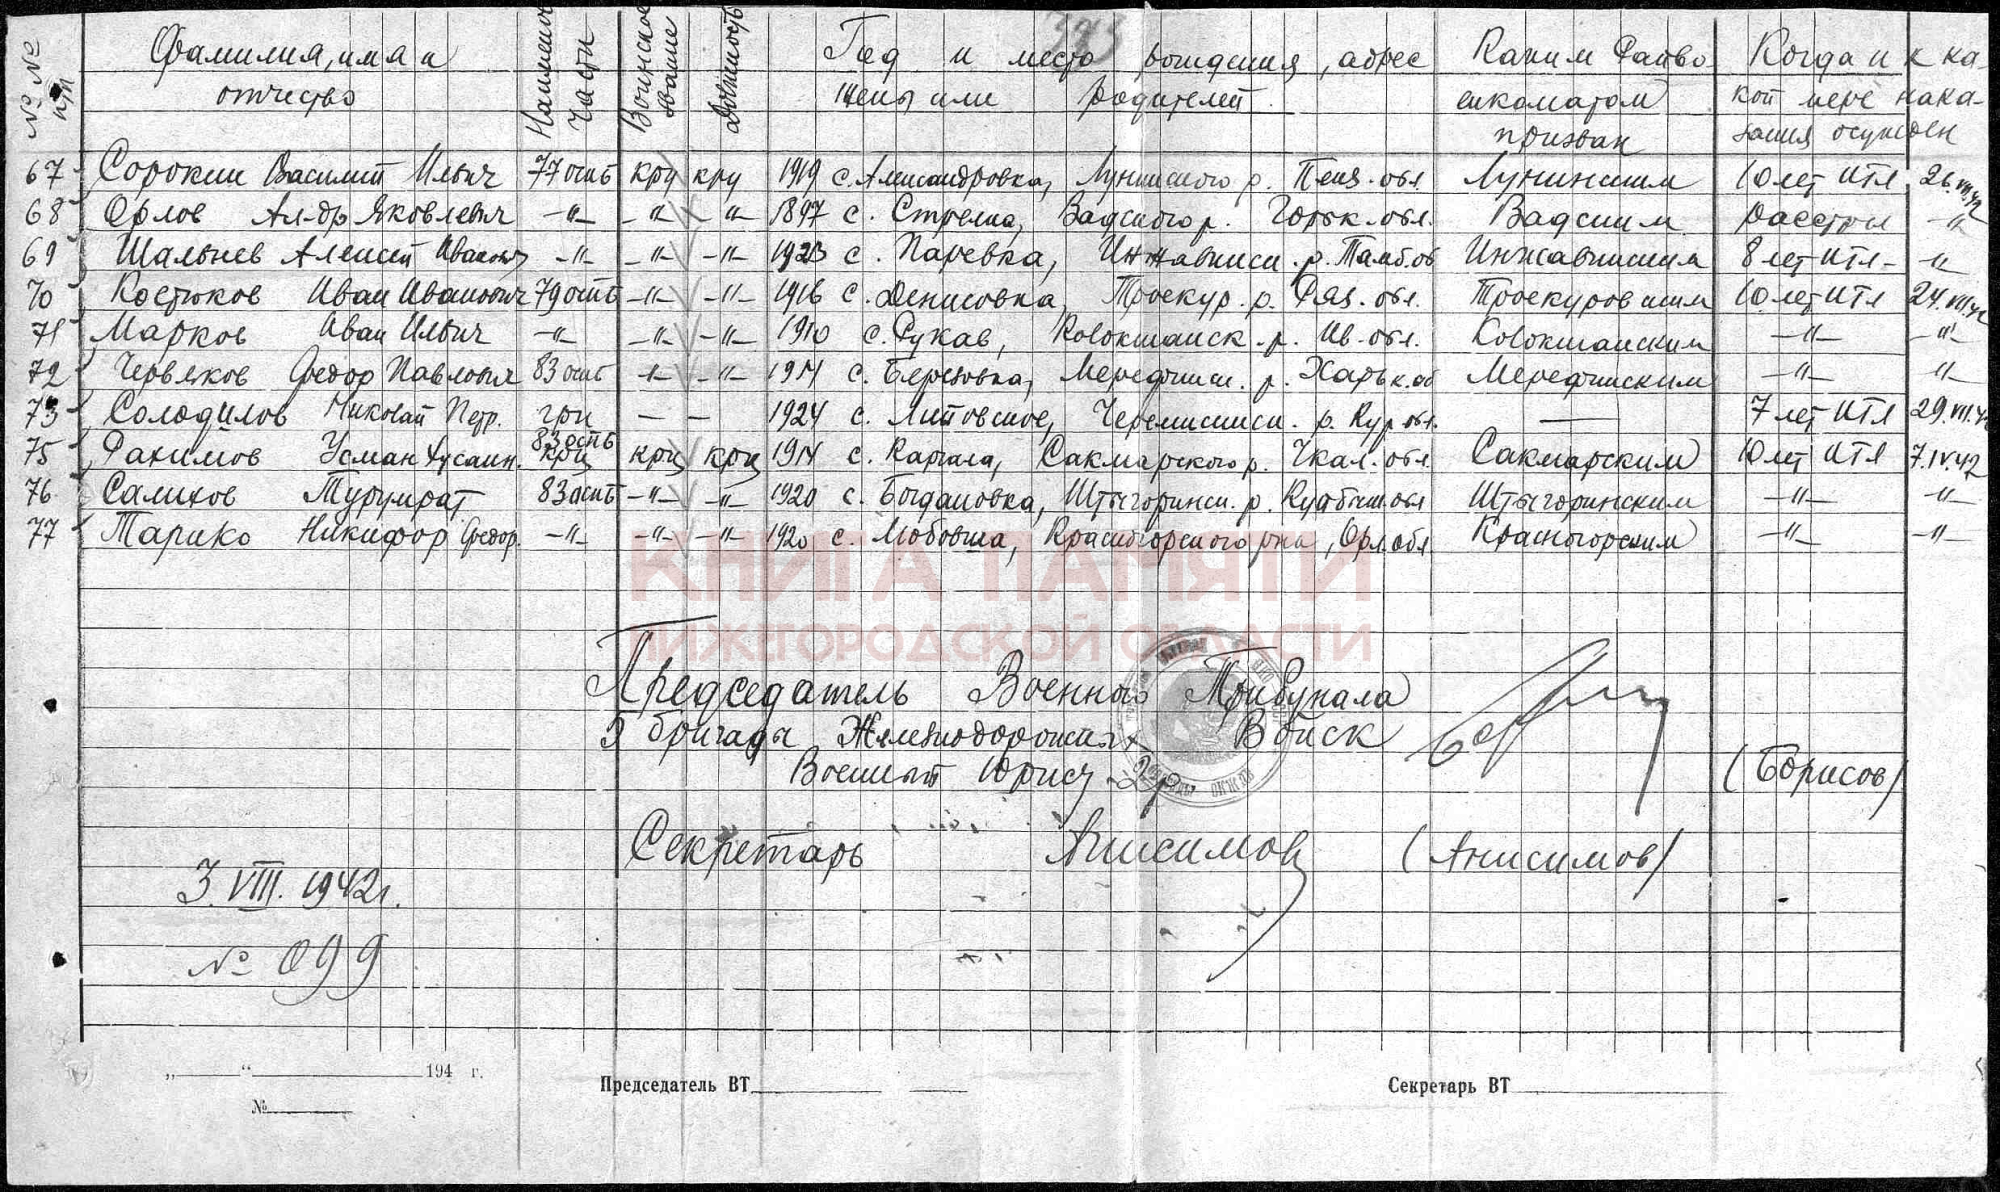 393
№№ п/п Фамилия, имя и отчество Наименов. Части Воинское звание Должность Год и место рождения, адрес жены или родителей Каким Райво енкоматом призван Когда и к ка- кой мере нака- зания осужден
67 Сорокин Василий Ильич 77 оспб кр-ц кр-ц 1919 с. Александровка, Лунинского р. Пенз. обл. Лунинским 10 лет ИТЛ
68 Орлов Ал-др Яковлевич -"- -"- -"- 1897 с. Стрелка, Вадского р. Горьк. обл. Вадским Расстрел -"-
69 Шальнев Алексей Иванович -"- -"- -"- 1923 с. Паревка, Инжавинск. р. Тамб. об Инжавинским 8 лет ИТЛ -"-
70 Костюков Иван Иванович 79 оспб -"- -"- 1916 с. Денисовка, Троекур. р. Ряз. обл. Троекуровским 10 лет ИТЛ
71 Марков Иван Ильич -"- -"- -"- 1910 с. Рукав, Колокшанск. р. Ив. обл. Колокшанским -"- -"-
72 Червяков Федор Павлович 83 оспб -"- -"- 1914 с. Березовка, Мерефинск. р. Харьк. об Мерефинским -"- -"-
73 Солодилов Николай Петр. гр-н — — 1924 с. Липовское, Черемисинск. р. Кур. обл. — 7 лет ИТЛ
75 Рахимов Усман Хусаин. 83 оспб кр-ц кр-ц кр-ц 1914 с. Каргала, Сакмарского р. Чкал. обл. Сакмарским 10 лет ИТЛ 7.IV.42
76 Салихов Тугумрат 83 оспб -"- -"- 1920 с. Богдановка, Штыгоринск. р. Куйбыш. обл Штыгоринским -"- -"-
77 Тарико Никифор Федор. -"- -"- -"- 1920 с. Любовша, Красногорского р-на, Орл. обл Красногорским -"- -"-
КНИГА ПАМЯТИ
НИЖЕГОРОДСКОЙ ОБЛАСТИ
Председатель Военного Трибунала
5 бригады Железнодорожных Войск
Военный Юрист
(Борисов)
Секретарь Анисимов (Анисимов)
3.VIII.1942г.
№ 099
„ “ 194 г. Председатель ВТ Секретарь ВТ
№